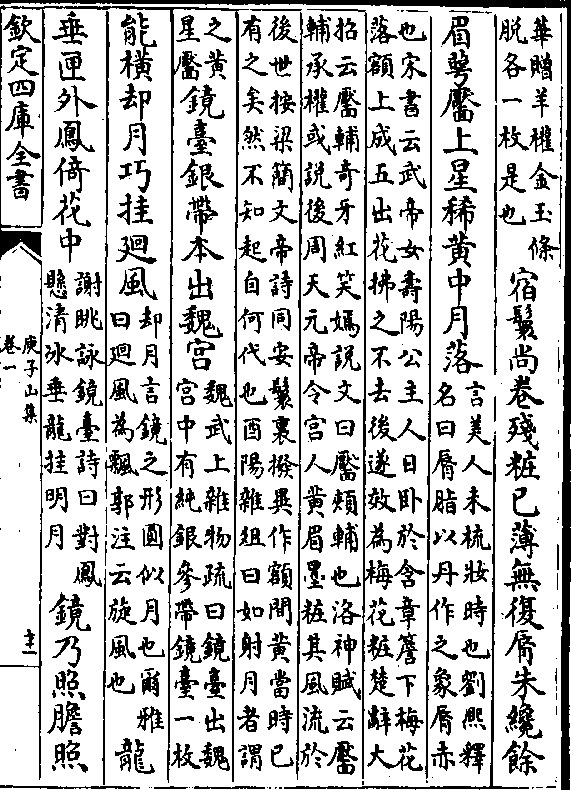 華贈羊權金玉條
脫各一枚是也
宿鬟尚卷殘粧已薄無復脣朱纔餘
眉萼靨上星稀黃中月落
言美人未梳妝時也劉熙釋
名曰脣脂以丹作之象脣赤
也宋書云武帝女壽陽公主人日卧於含章簷下梅花
落額上成五出花拂之不去後遂效為梅花粧楚辭大
招云靨輔奇牙紅笑嫣説文曰靨頰輔也洛神賦云靨
輔承權或説後周天元帝令宮人黃眉墨粧其風流於
後世按梁簡文帝詩同安鬟裏撥異作額間黃當時已
有之矣然不知起自何代也酉陽雜俎曰如射月者謂
之黃
星靨
鏡臺銀帶本出魏宮
魏武上雜物疏曰鏡臺出魏
宮中有純銀參帶鏡臺一枚
能橫却月巧挂廻風
却月言鏡之形圓似月也爾雅
曰廻風為飄郭注云旋風也
龍
垂匣外鳳倚花中
謝朓詠鏡臺詩曰對鳳
懸清冰垂龍挂明月
鏡乃照膽照
欽定四庫全書
庾子山集
卷一